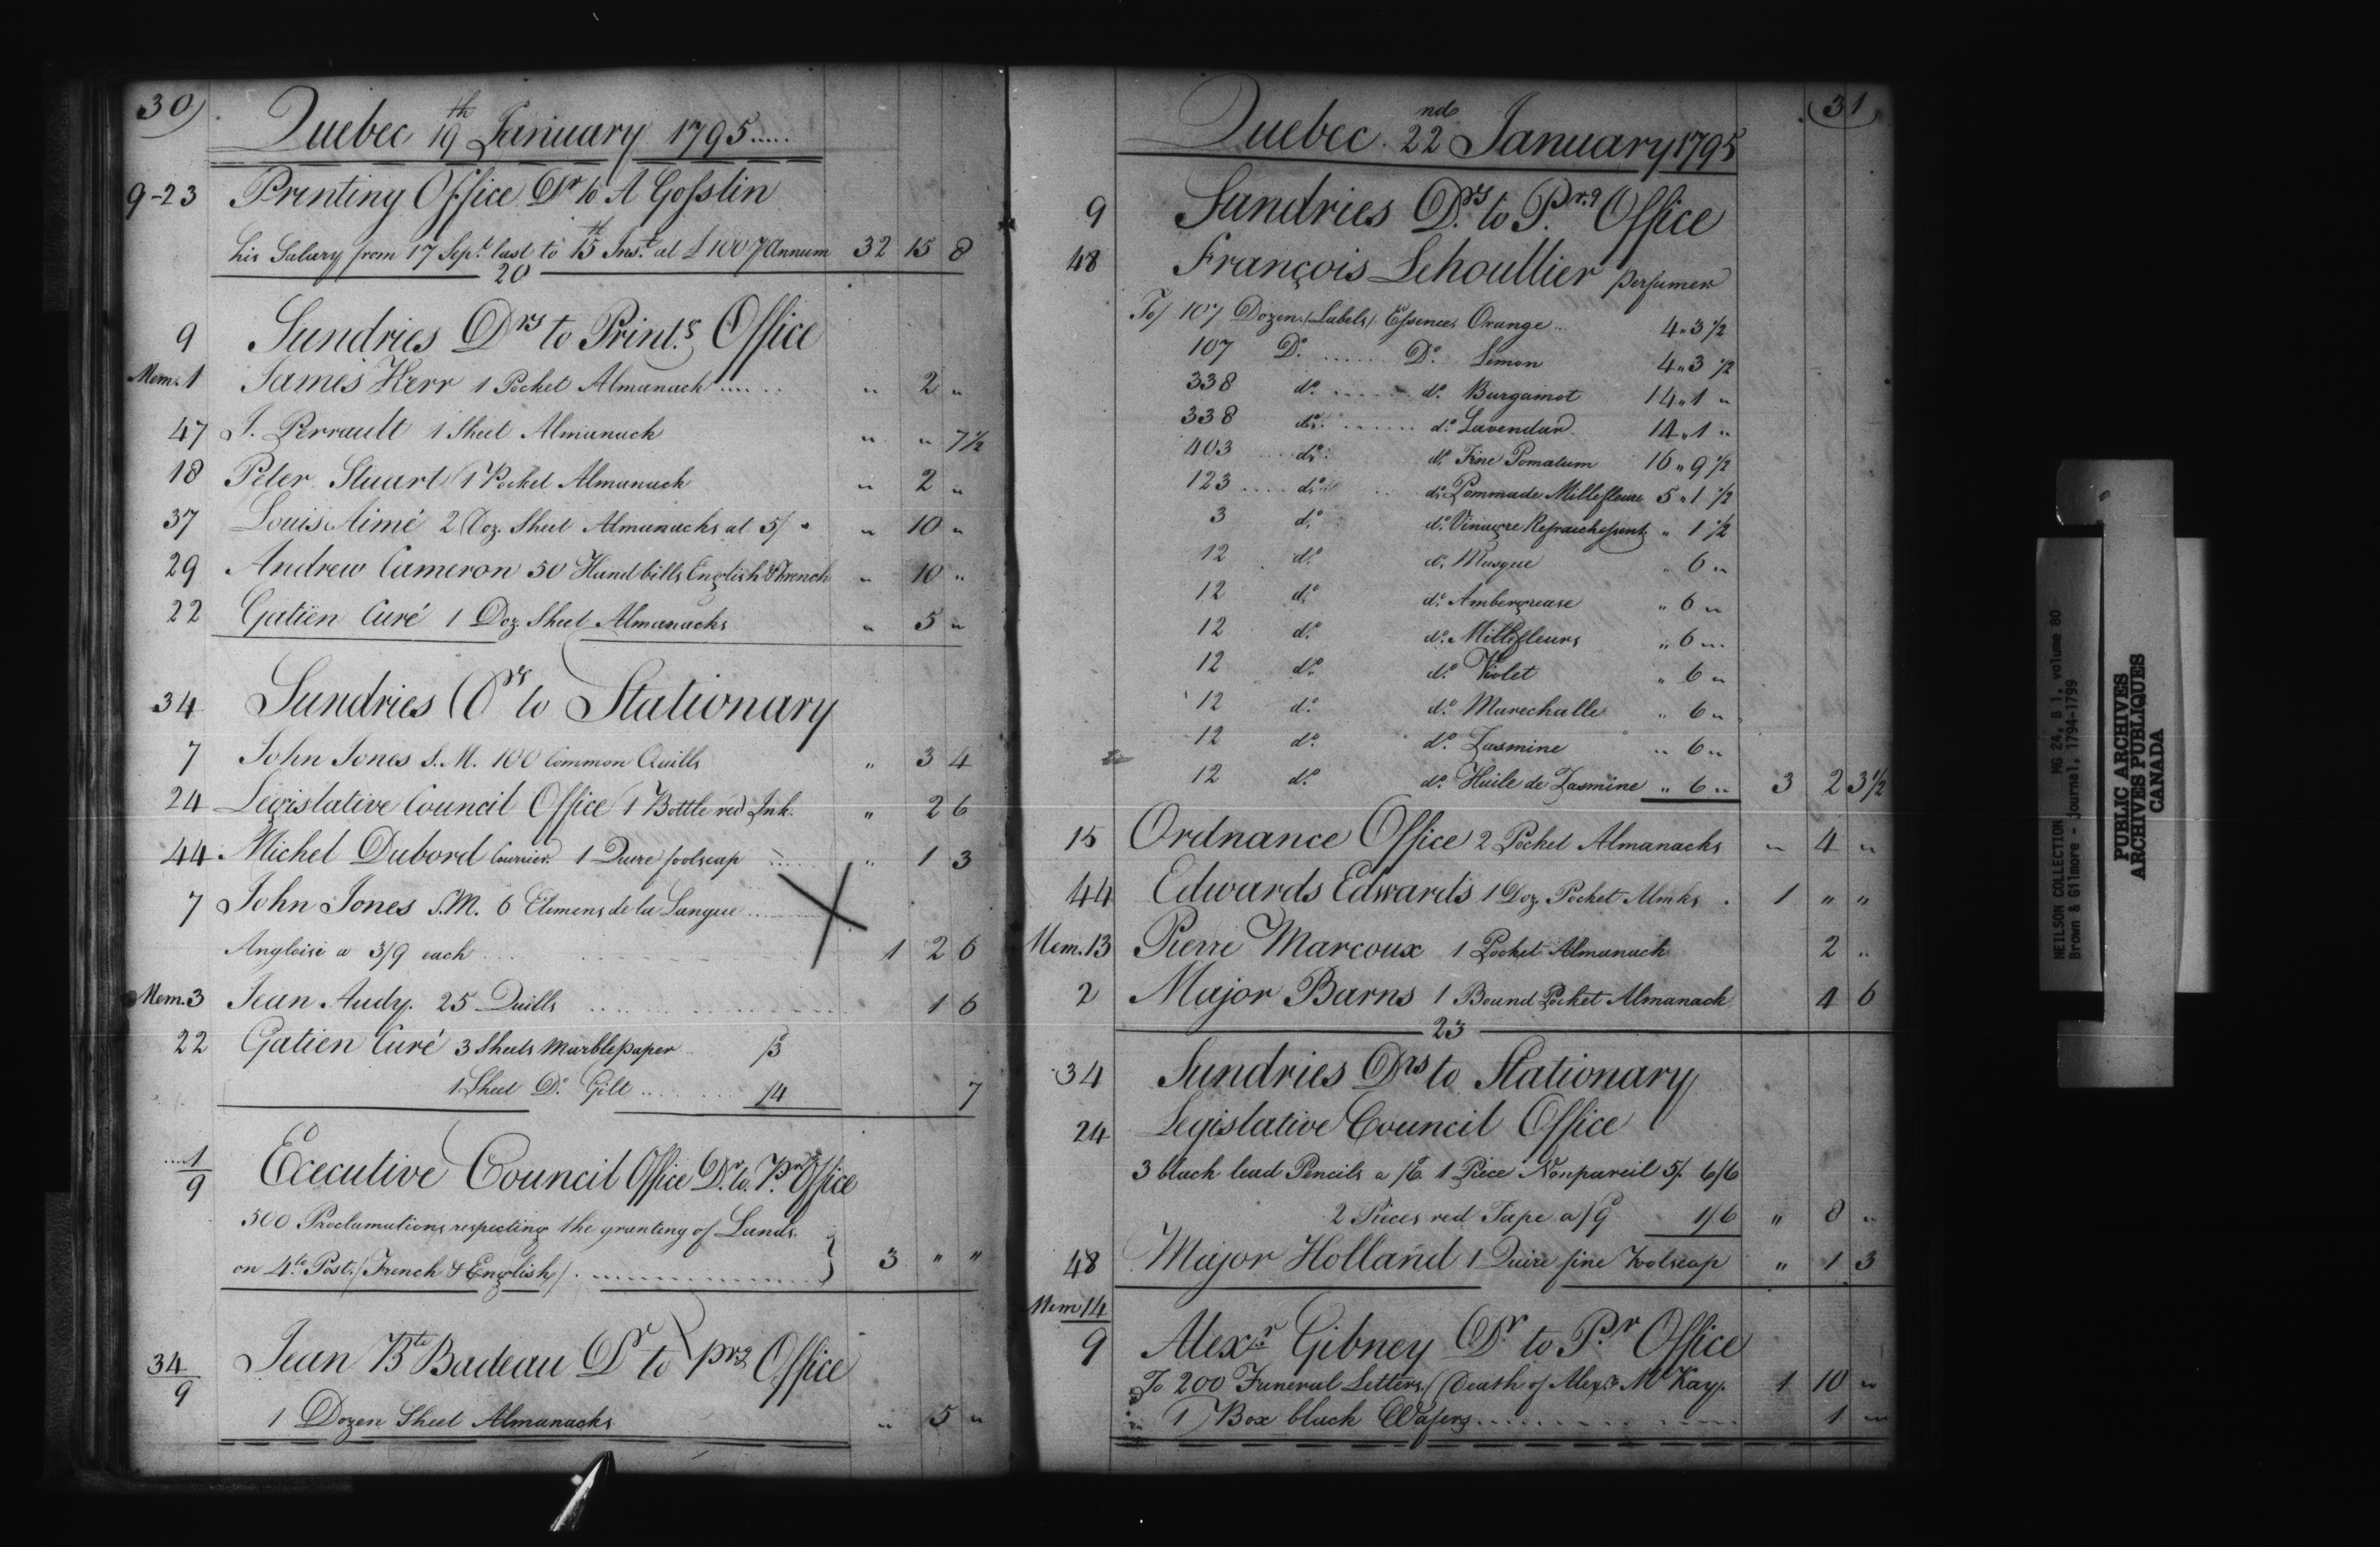 30)
Quebec 19th January 1795.....
9-23 Printing Office Dr to A Gosslin
his Salary from 17 Sept. last to 15th Inst. at £100 P Annum 32 15 8
20
9 Sundries Drs to Print.g Office
Mem. 1 James Kerr 1 Pocket Almanach ...... " 2 "
47 J. Perrault 1 Sheet Almanach " " 7½
18 Peter Stuart 1 Pocket Almanach " 2 "
37 Louis Aimé 2 Doz. Sheet Almanacks at 5/ " " 10 "
29 Andrew Cameron 50 Handbills English & French " 10 "
22 Gatien Curé 1 Doz. Sheet Almanacks " 5 "
34 Sundries Drs to Stationary
7 John Jones S.M. 100 Common Quills " 3 4
24 Legislative Council Office 1 Bottle red Ink. " 2 6
44 Michel Dubord Courrier. 1 Quire foolscap " 1 3
7 John Jones S.M. 6 Elemens de la Langue ........
Angloise a 3/9 each ... 1 2 6
Mem. 3 Jean Audy. 25 Quills ........ 1 6
22 Gatien Curé 3 Sheets Marble paper .. /3
1 Sheet Do. Gilt ........ /4 7
1/9 Executive Council Office Dr. to. Prg Office
500 Proclamations respecting the granting of Lands.
on 4to. Post./French & English/. ........ } 3 " "
34/9 Jean Bte Badeau Dr to prg Office
1 Dozen Sheet Almanacks " 5 "
(31
Quebec. 22nd January 1795
9 Sundries Drs to Prg Office
48 François Lehoullier perfumer
To/ 107 Dozen /Labels/. Essences Orange ... 4 " 3½
107 Do. ..... Do. Limon 4 " 3½
338 do. ..... do. Burgamot 14 " 1 "
338 do. ..... do. Lavendar. 14 " 1 "
403 .... do. do. Fine Pomatum 16 " 9½
123 .... do. .. do. Pommade Millefleure 5 " 1½
3 do. do. Vinaigre Refraichissent. " 1½
12 do. do. Musque " 6 "
12 do. do. Ambergrease " 6 "
12 do. do. Millefleurs " 6 "
12 do. do. Violet " 6 "
12 do. do. Marechalle " 6 "
12 do. do. Jasmine " 6 "
12 do. do. Huile de Jasmine " 6 " 3 2 3½
15 Ordnance Office 2 Pocket Almanacks " 4 "
44 Edwards Edwards 1 Doz. Pocket Almks . 1 " "
Mem. 13 Pierre Marcoux 1 Pocket Almanach 2 "
2 Major Barns 1 Bound Pocket Almanack 4 6
23
34 Sundries Drs to Stationary
24 Legislative Council Office
3 black lead Pencils a /6. 1 Piece Nonpareil 5/. 6/6
2 Pieces red Tape a /9 1/6 " 8 "
48 Major Holland 1 Quire fine Foolscap " 1 3
Mem 14/9 Alexr. Gibney Dr to Pr. Office
To 200 Funeral Letters./Death of Alexr. McKay. 1 10 "
" 1 Box black Wafers........ 1 "
NEILSON COLLECTION MG 24, B 1, volume 80
Brown & Gilmore - journal, 1794-1799
PUBLIC ARCHIVES
ARCHIVES PUBLIQUES
CANADA